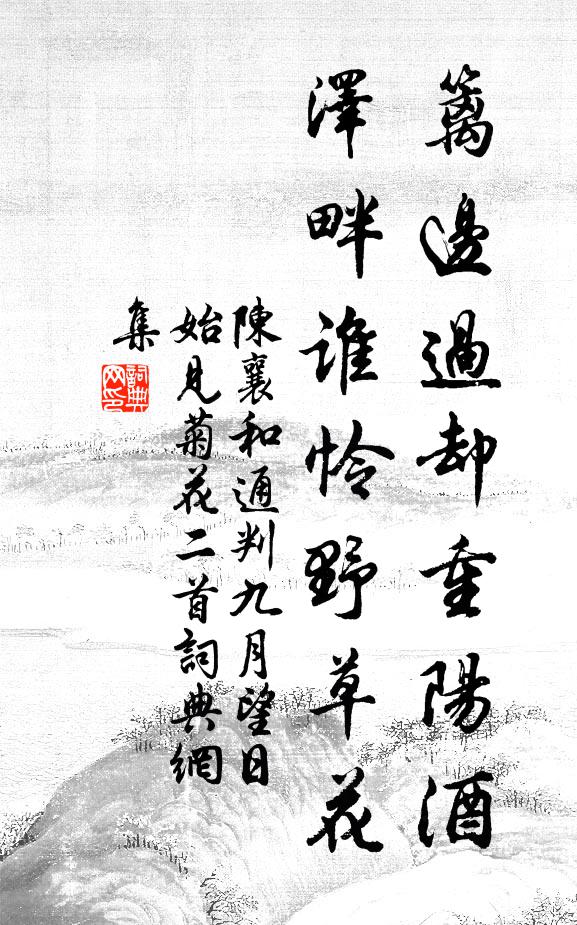 籬邊過却重陽酒
澤畔誰怜野草花
陳襄和通判九月望日
始見菊花二首詞典網
集
詞典
網印